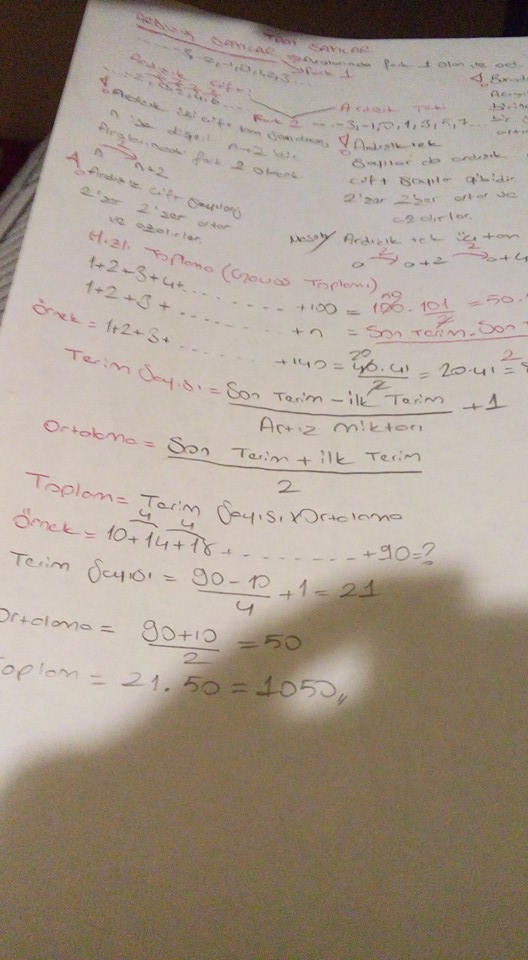 TAM SAYILAR
ARDIŞIK SAYILAR → Aralarında fark 1 olan
... -3, -2, -1, 0, 1, 2, 3 ... → Fark 1
Ardışık Çift:
... -2, 0, 2, 4, 6 ...
Fark 2
Ardışık Tek:
... -3, -1, 0, 1, 3, 5, 7 ...
Ardışık iki çift
n ise diğeri n+2
fark 2
n → n+2
2
Ardışık çift sayılar
2'şer 2'şer artar
ve azalırlar.
Ardışık tek
sayılar da ardışık
çift sayılar gibidir.
2'şer 2'şer artar ve
azalırlar.
Ardışık tek üç tam
a →2 a+2 →2 a+4
Hızlı Toplama (Gauss Toplamı)
1+2+3+4+ ........... +100 = 100.101 / 2 = 50.
1+2+3+ ........... +n = Son Terim . Son
2
Örnek = 1+2+3+ ........... +140 = 40.41 / 2 = 20.41 =
20
Terim Sayısı = Son Terim - ilk Terim / Artış miktarı + 1
Ortalama = Son Terim + ilk Terim / 2
Toplam = Terim Sayısı x Ortalama
4 4
Örnek = 10+14+18+ .......... +90=?
Terim Sayısı = 90-10 / 4 + 1 = 21
Ortalama = 90+10 / 2 = 50
Toplam = 21.50 = 1050,,